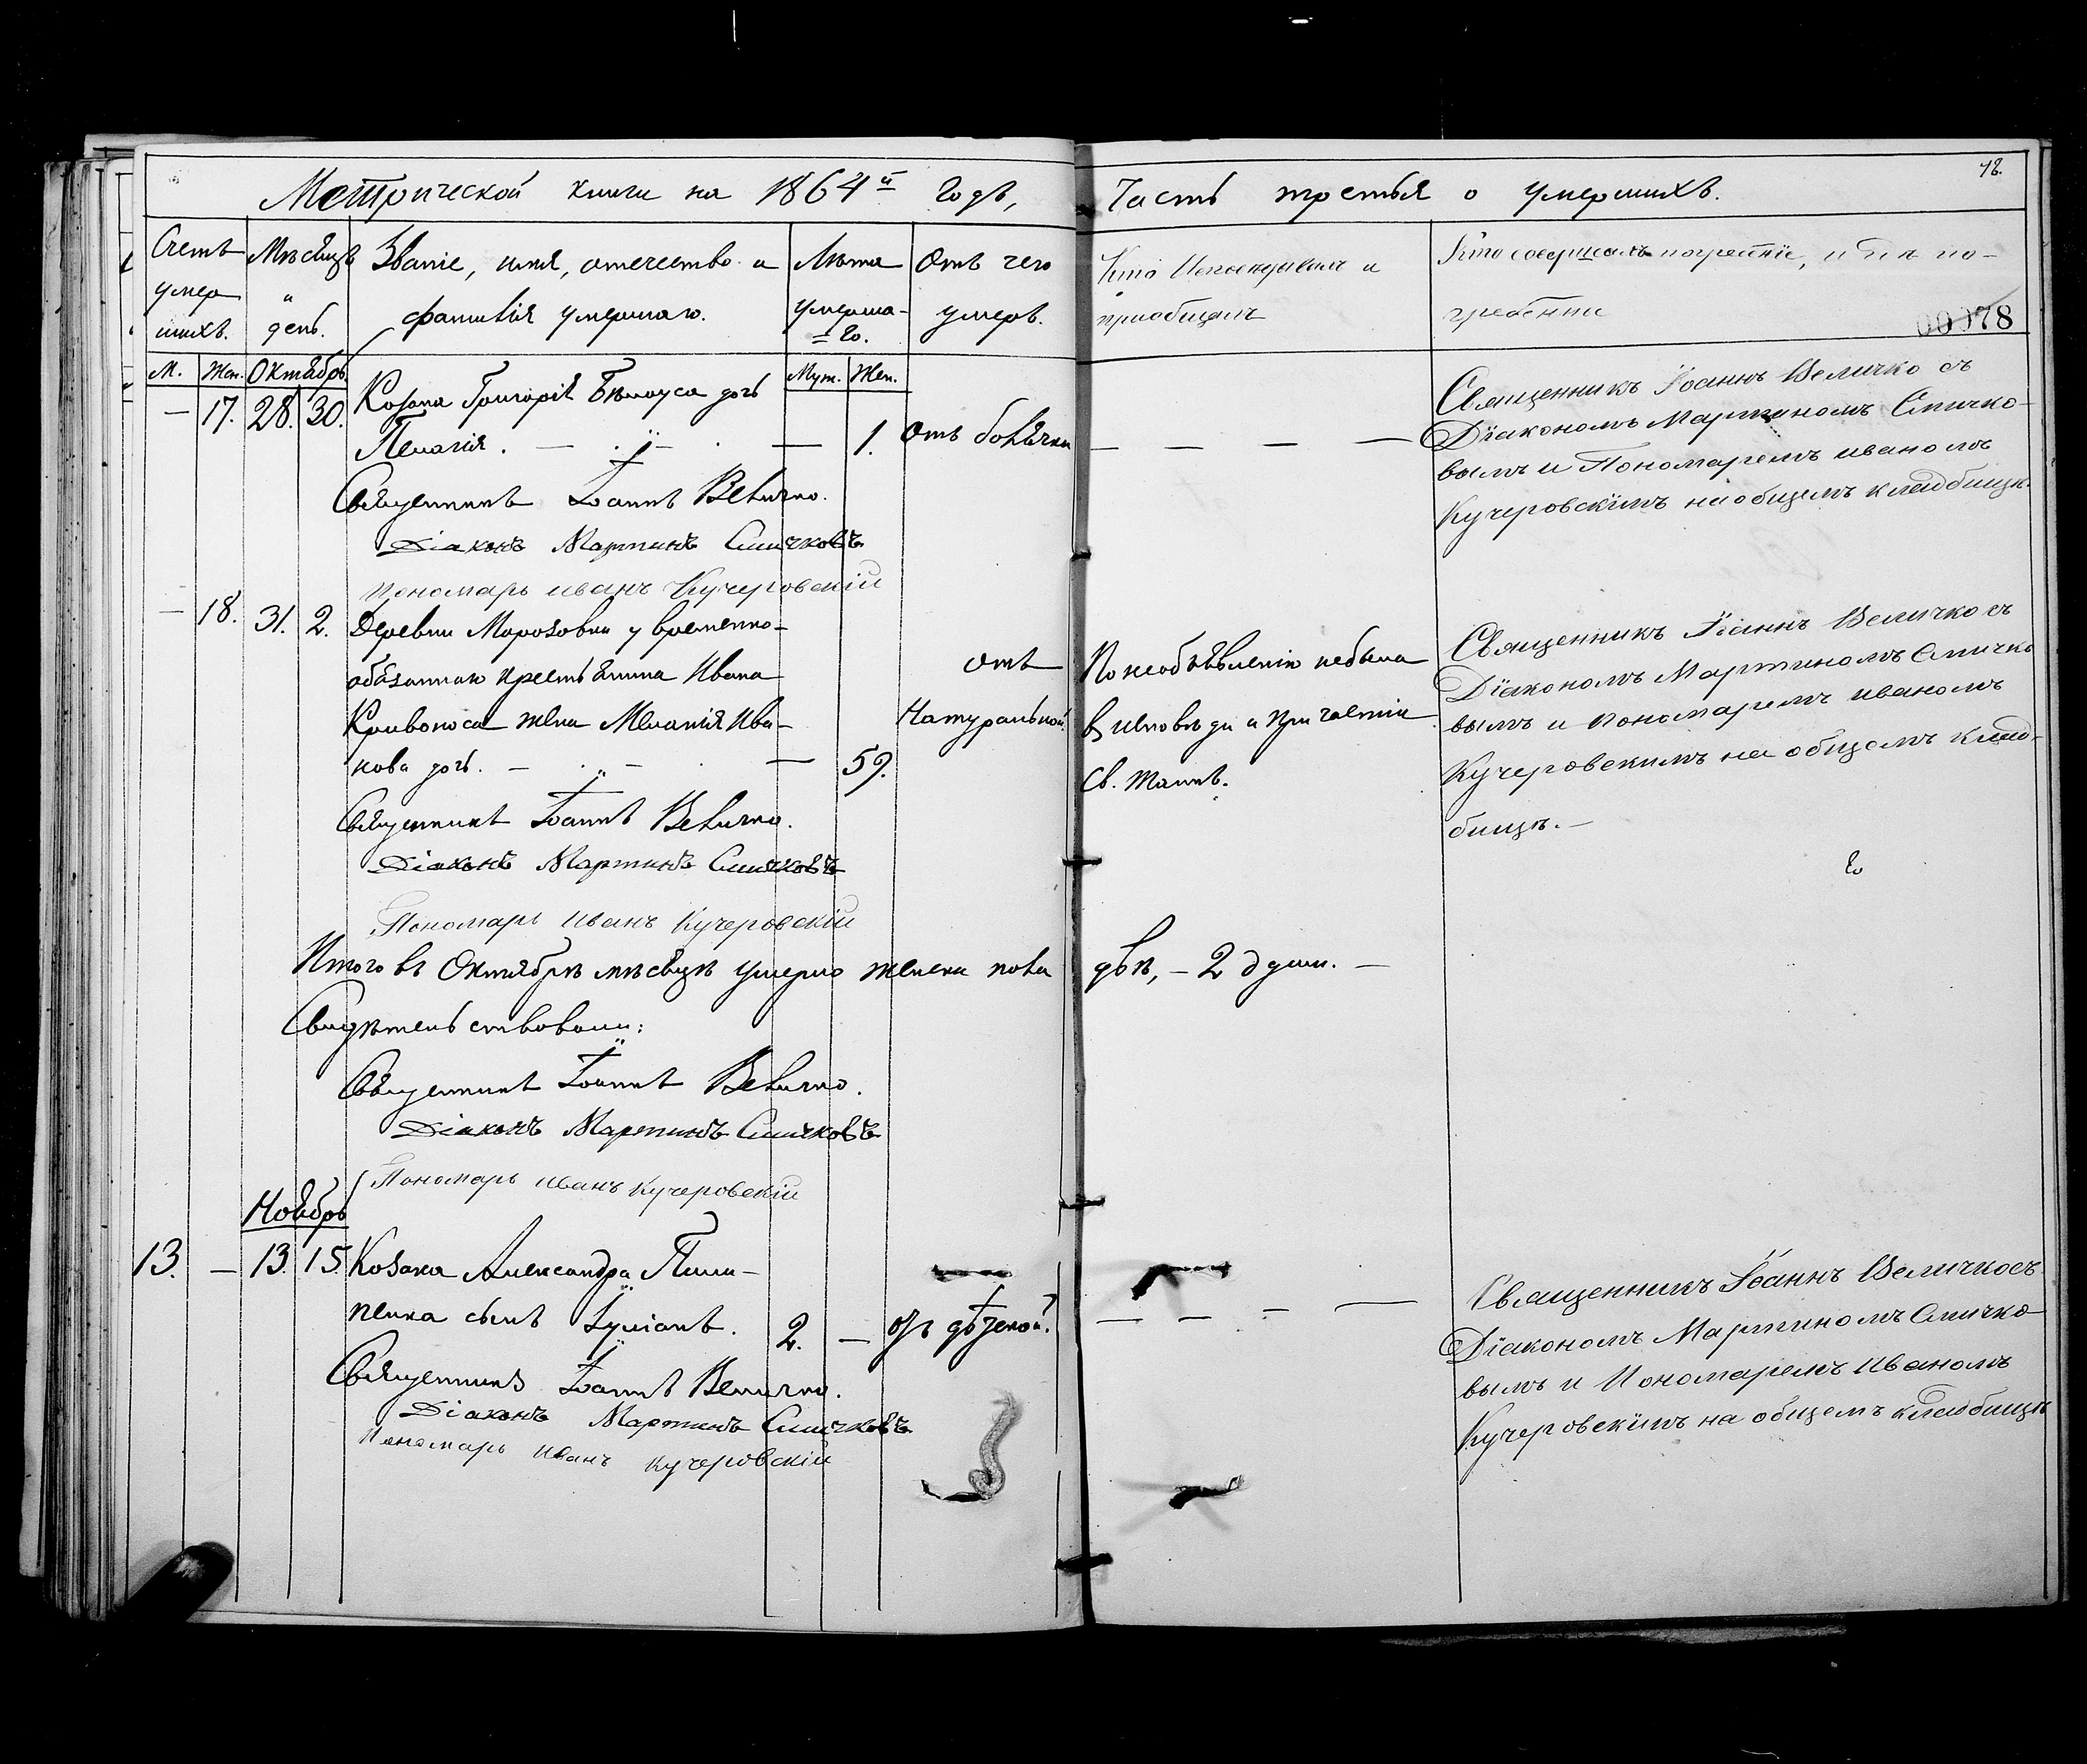 78.
Метрической книги на 1864й годъ, Часть третья о умершихъ.
Счетъ умер шихъ.
Мѣсяцъ и день.
Званіе, имя, отечество и фамилія умершаго.
Лѣта умерша- го.
Отъ чего умеръ.
Кто Исповѣдывалъ и пріобщалъ
Кто совершалъ погребеніе, и гдѣ по-
гребены
00078
М. Жен. Октябрь Муж. Жен.
— 17. 28. 30. Козака Григорія Бѣлоуса дочь
Пелагія. — 1. Отъ болячки — — — —
Священникъ Іоаннъ Величко съ
Діакономъ Мартиномъ Смичко-
вымъ и Пономаремъ иваномъ
Кучеровскимъ на общемъ кладбищѣ.
Священникъ Іоаннъ Величко.
Діаконъ Мартинъ Смичковъ
Пономарь иванъ Кучеровскій
— 18. 31. 2. Деревни Морозовки у временно-
обязаннаго крестьянина Ивана
Кривоноса жена Меланія Ива-
нова дочь. — 59.
отъ
Натуральной.
По необъявленію небыла
в исповѣди и причастіи
Св. Таинъ.
Священникъ Іоаннъ Величко съ
Діакономъ Мартиномъ Смичко
вымъ и пономаремъ иваномъ
Кучеровскимъ на общемъ клад-
бищѣ. —
Священникъ Іоаннъ Величко.
Діаконъ Мартинъ Смичковъ
Пономарь Иванъ Кучеровскій
Итого въ Октябрѣ мѣсяцѣ умерло женска пола двѣ, — 2 души. —
Свидѣтельствовали:
Священникъ Іоаннъ Величко.
Діаконъ Мартинъ Смичковъ
Пономарь иванъ Кучеровскій
Ноябрь
13. — 13. 15. Козака Александра Пили-
пенка сынъ Іуліанъ. 2. — отъ дѣтской. — — — —
Священникъ Іоаннъ Величко съ
Діакономъ Мартиномъ Смичко-
вымъ и Пономаремъ Иваномъ
Кучеровскимъ на общемъ кладбищѣ
Священникъ Іоаннъ Величко.
Діаконъ Мартинъ Смичковъ
Пономарь Иванъ Кучеровскій